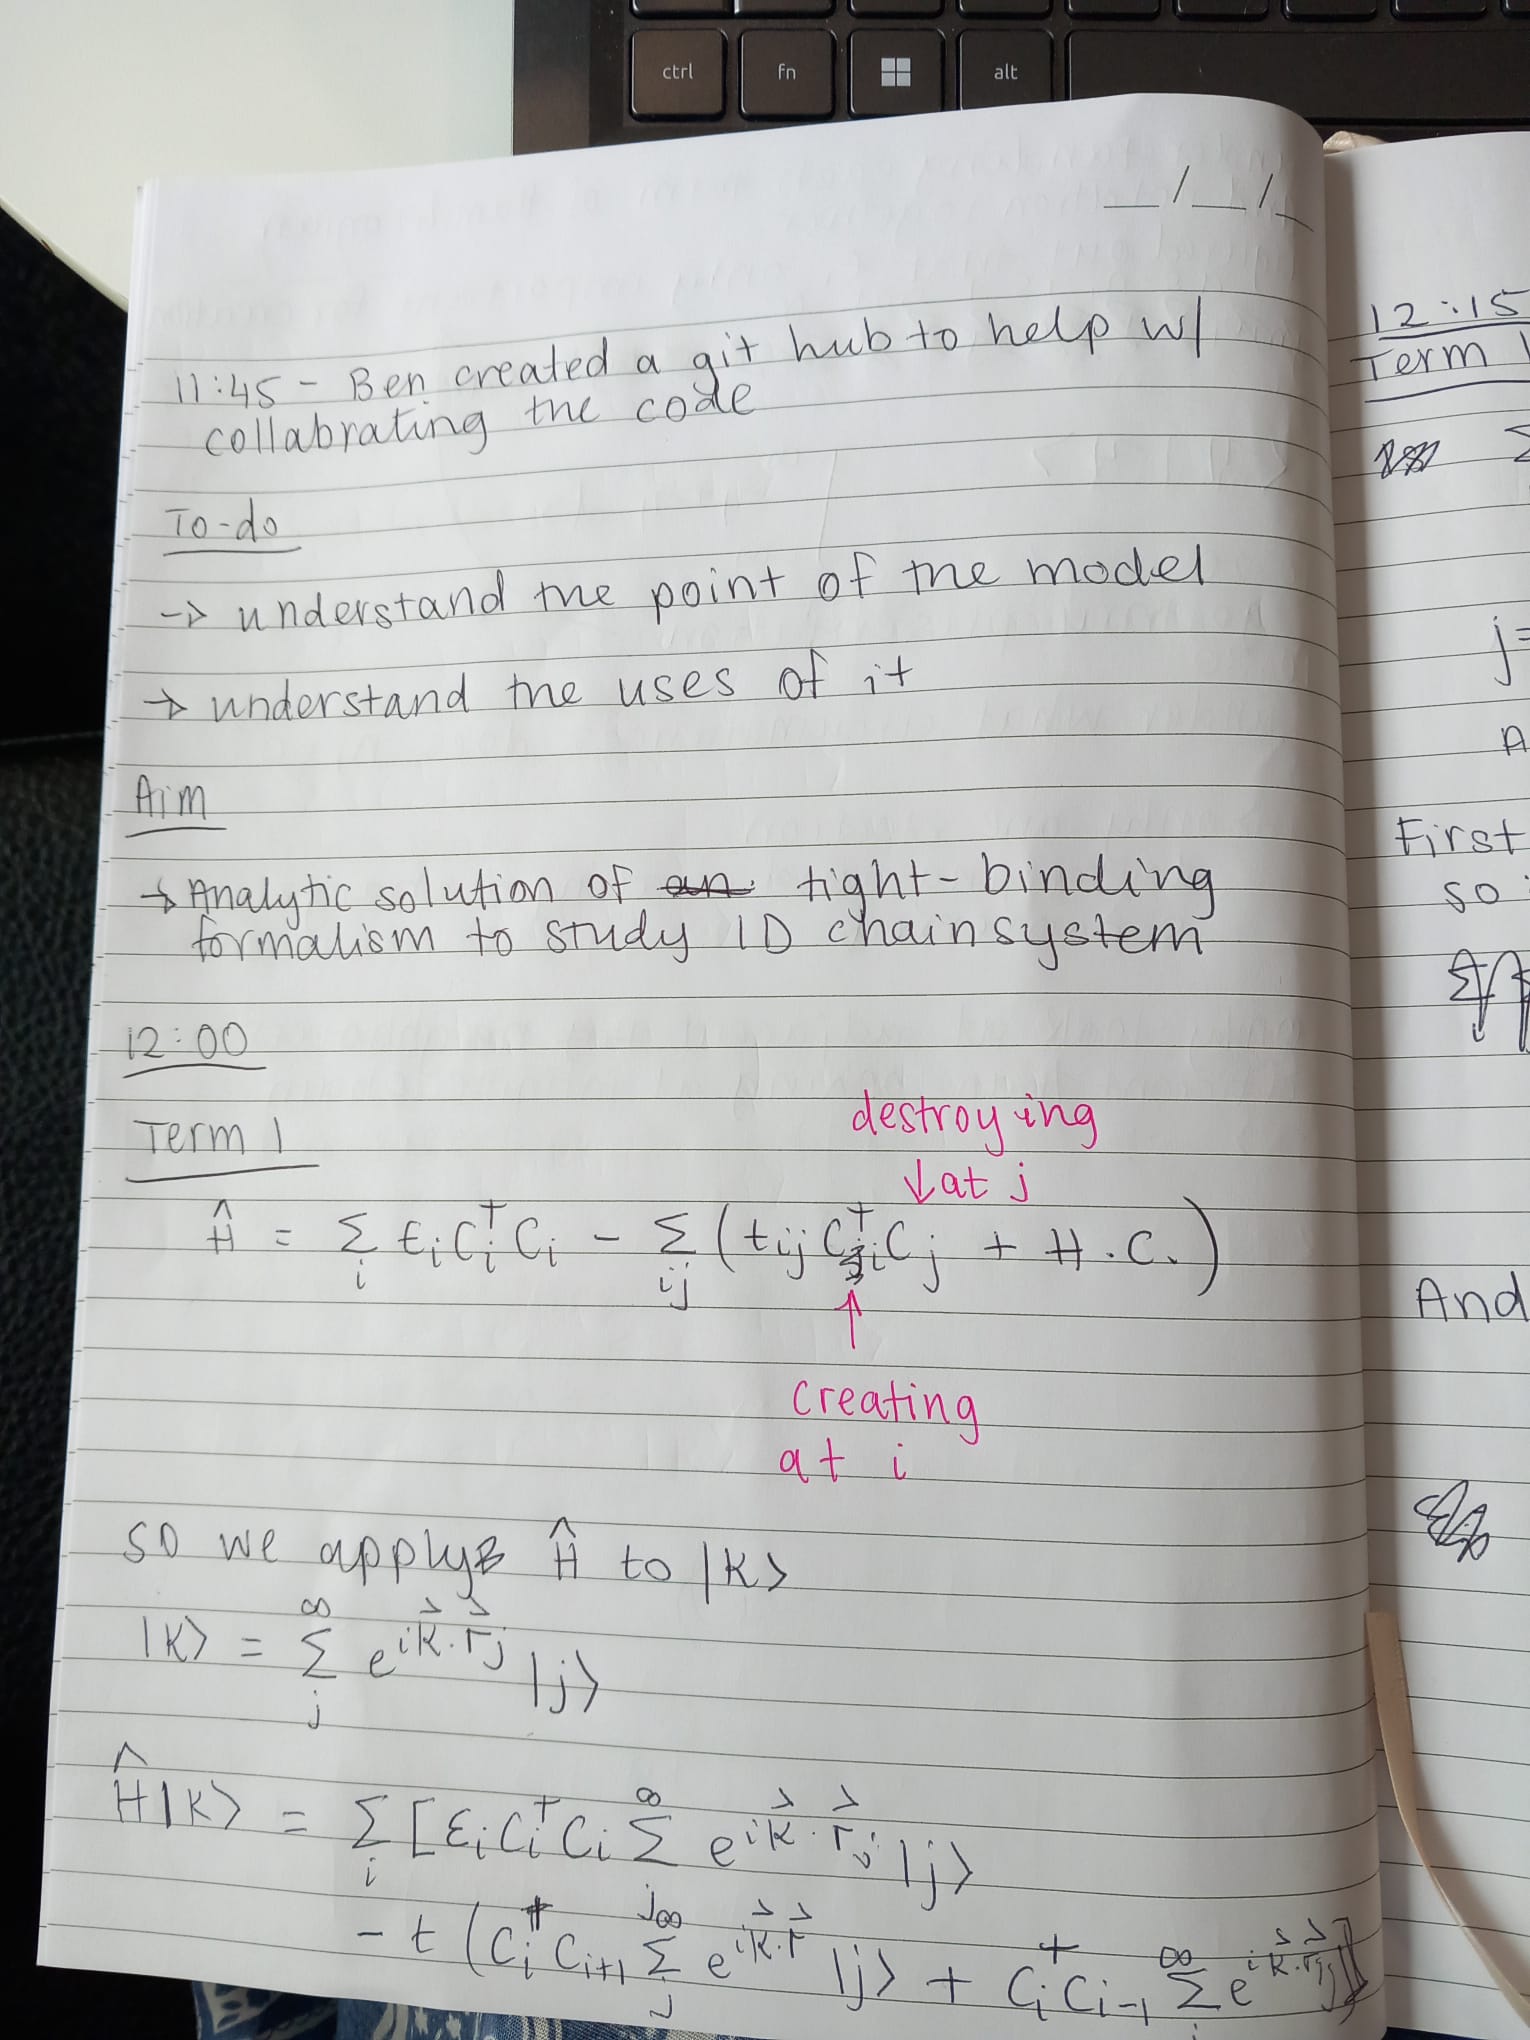 ctrl fn alt
__/__/_
11:45 - Ben created a git hub to help w/
collabrating the code
To-do
-> understand the point of the model
-> understand the uses of it
Aim
-> Analytic solution of tight-binding
formalism to study 1D chain system
12:00
Term 1
destroying
↓ at j
Ĥ = Σ_i ε_i C_i† C_i - Σ_ij (t_ij C_i† C_j + H.C.)
↑
creating
at i
so we apply Ĥ to |K>
|K> = Σ_j^∞ e^{i k⃗·r⃗_j} |j>
Ĥ|K> = Σ_i [ε_i C_i† C_i Σ_j^∞ e^{i k⃗·r⃗_j} |j>
- t (C_i† C_{i+1} Σ_j^∞ e^{i k⃗·r⃗} |j> + C_i† C_{i-1} Σ^∞ e^{i k⃗·r⃗_j}
12:15
Term
Σ
j=
A
First
so
And